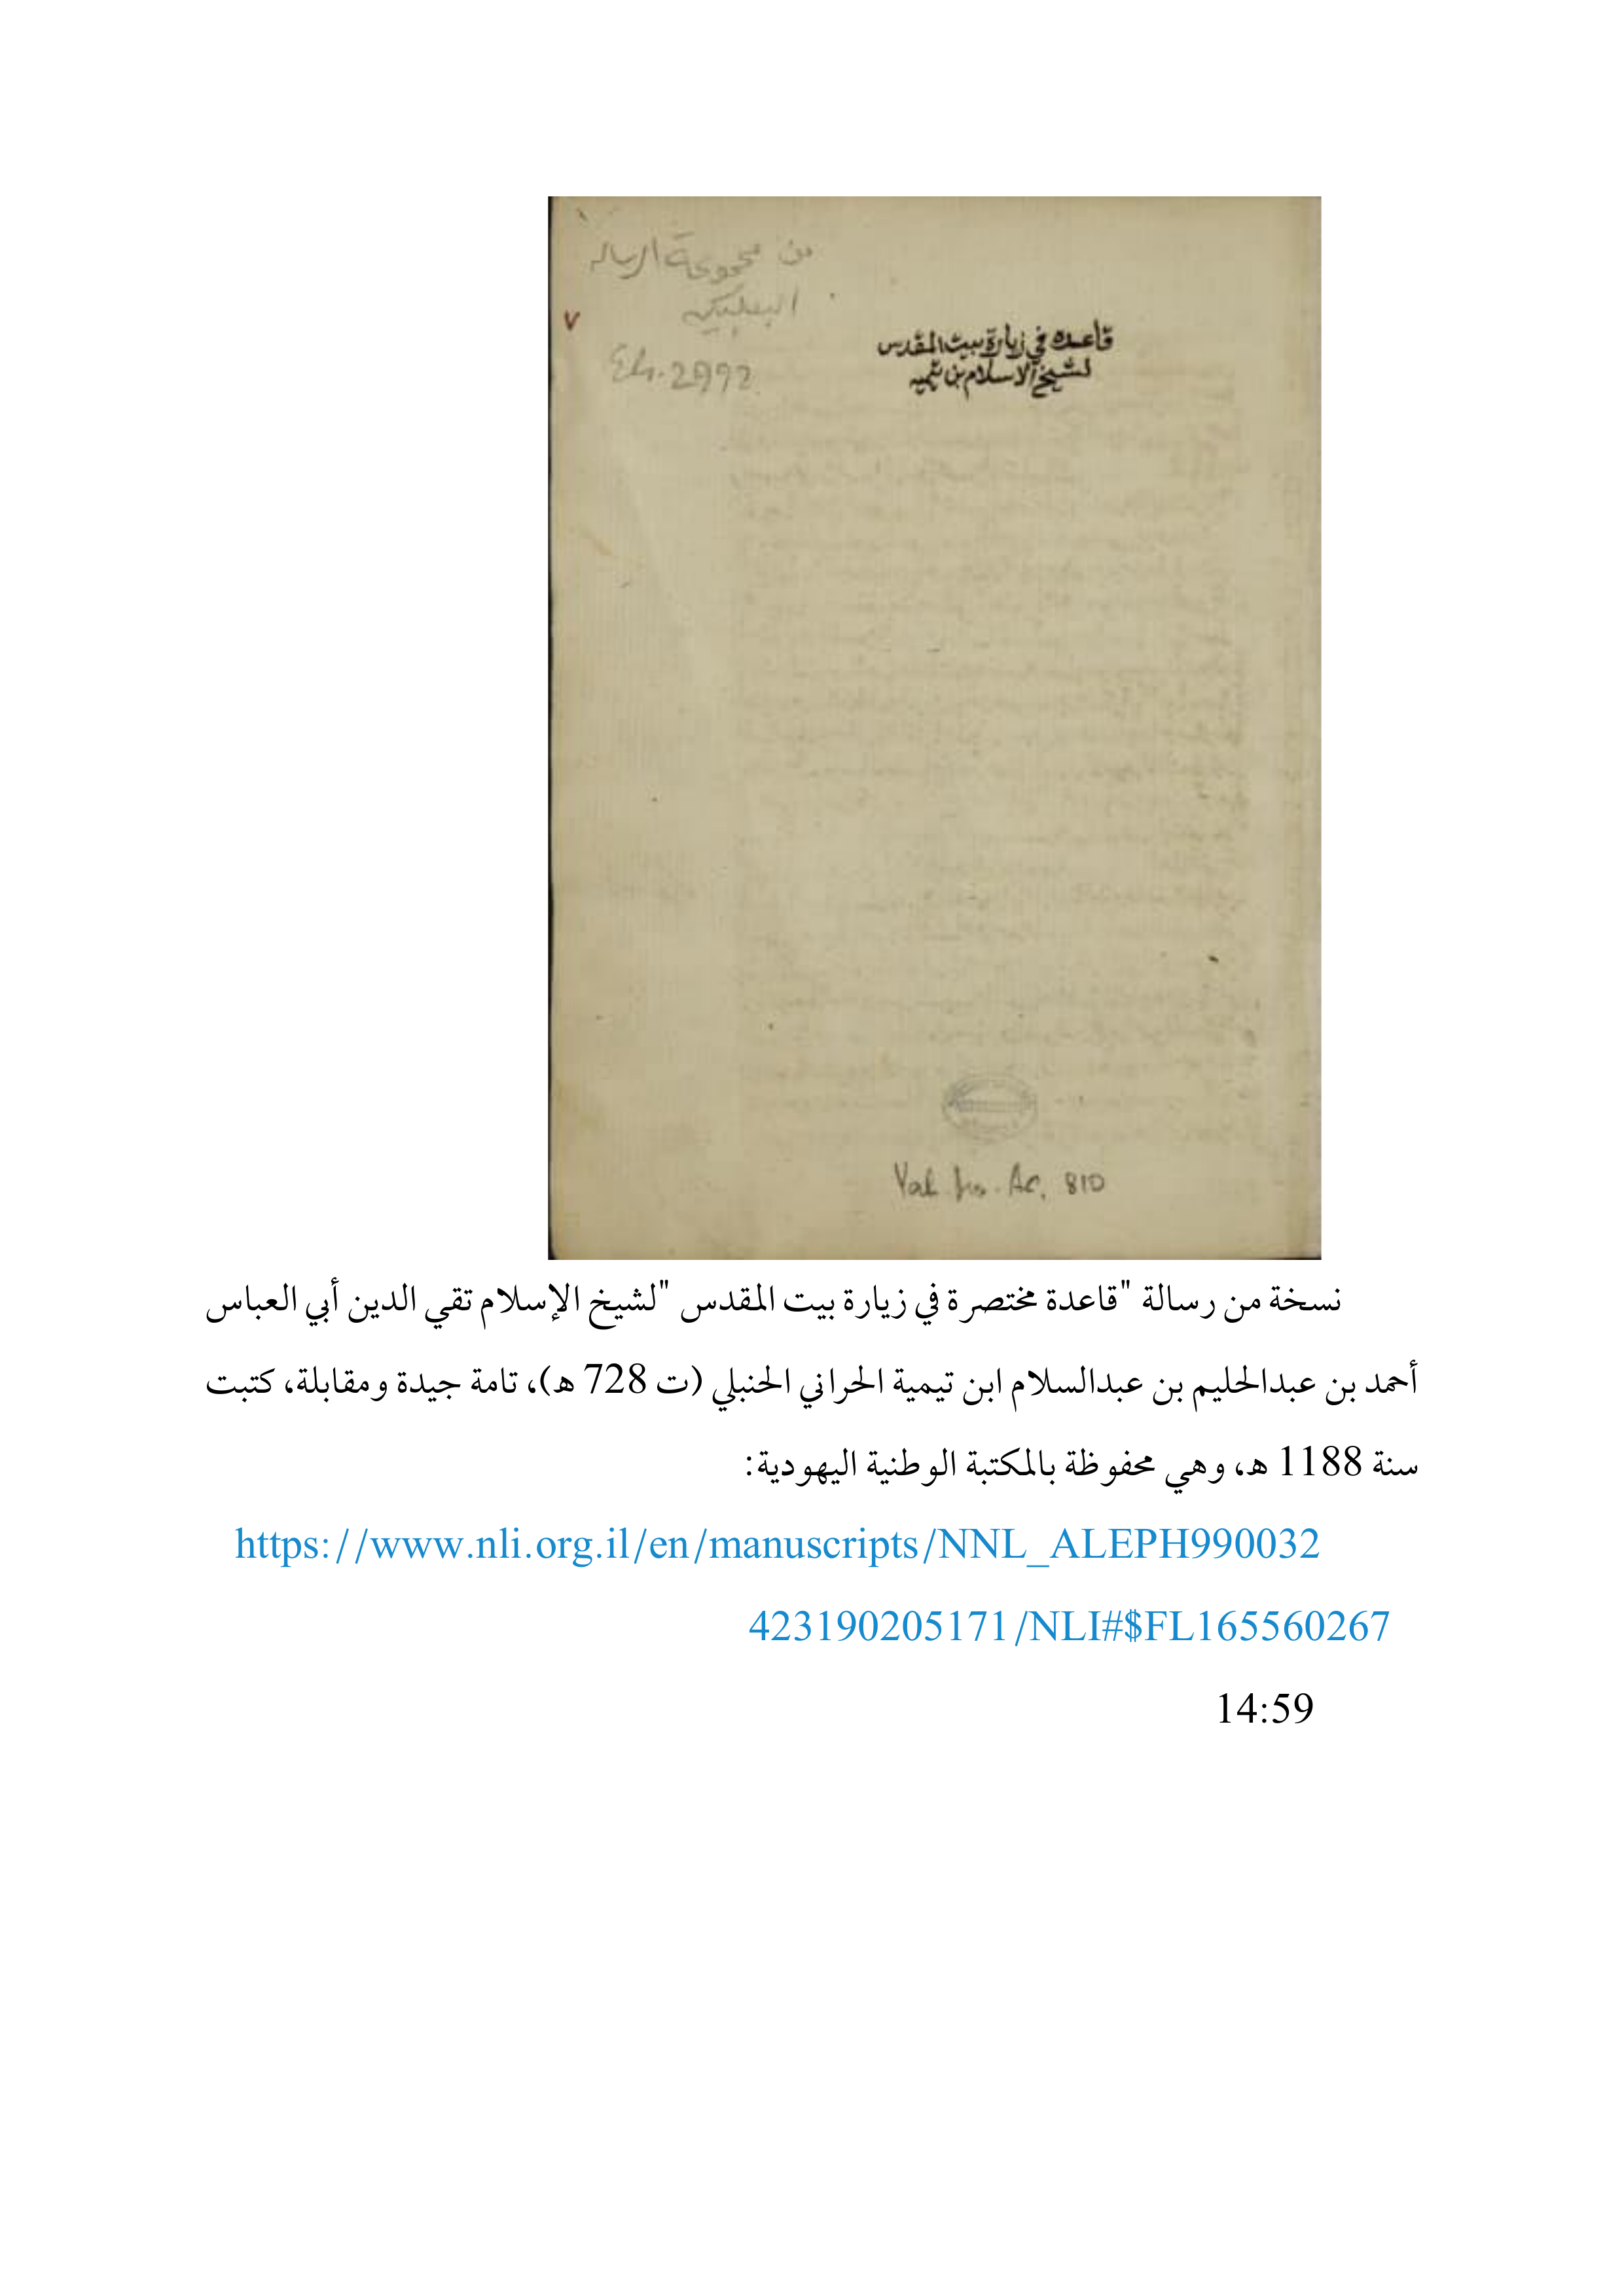 من مجموعة الرساله
البعلبكيه
٧
قاعده في زيارة بيت المقدس
لشيخ الاسلام بن تيميه
2992
Yah. Ms. Ar. 810
نسخة من رسالة "قاعدة مختصرة في زيارة بيت المقدس "لشيخ الإسلام تقي الدين أبي العباس
أحمد بن عبدالحليم بن عبدالسلام ابن تيمية الحراني الحنبلي (ت 728 ه)، تامة جيدة ومقابلة، كتبت
سنة 1188 ه، وهي محفوظة بالمكتبة الوطنية اليهودية:
https://www.nli.org.il/en/manuscripts/NNL_ALEPH990032
423190205171/NLI#$FL165560267
14:59